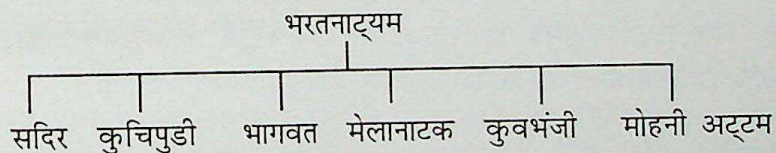 भरतनाट्यम
सदिर कुचिपुडी भागवत मेलानाटक कुवभंजी मोहनी अट्टम